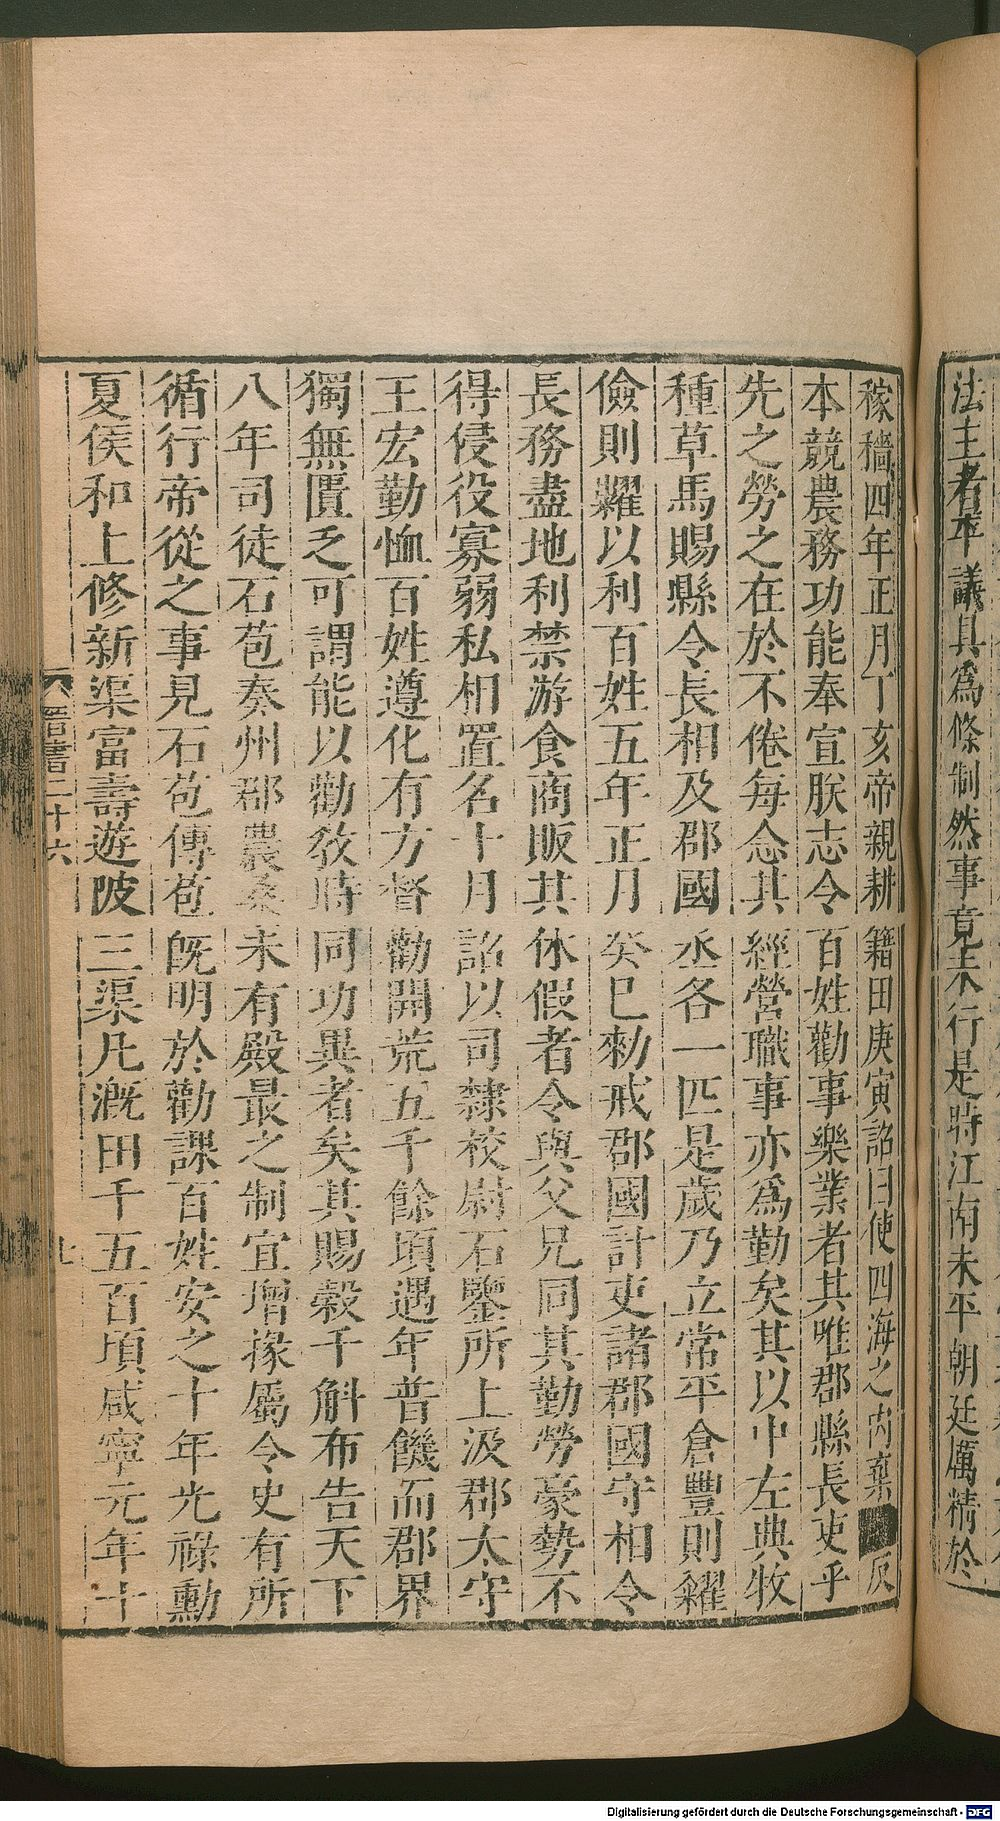 法主者平議具爲條制然事竟未行是時江南未平朝廷厲精於
稼穡四年正月丁亥帝親耕籍田庚寅詔曰使四海之内棄反
本競農務功能奉宣朕志令百姓勸事樂業者其唯郡縣長吏乎
先之勞之在於不倦每念其經營職事亦爲勤矣其以中左典牧
種草馬賜縣令長相及郡國丞各一匹是歲乃立常平倉豐則糴
儉則糶以利百姓五年正月癸巳勑戒郡國計吏諸郡國守相令
長務盡地利禁游食商販其休假者令與父兄同其勤勞豪勢不
得侵役寡弱私相置名十月詔以司隸校尉石鑒所上汲郡太守
王宏勤恤百姓遵化有方督勸開荒五千餘頃遇年普饑而郡界
獨無匱乏可謂能以勸教時同功異者矣其賜穀千斛布告天下
八年司徒石苞奏州郡農桑未有殿最之制宜增掾屬令史有所
循行帝從之事見石苞傳苞既明於勸課百姓安之十年光祿勳
夏侯和上修新渠富壽遊陂三渠凡溉田千五百頃咸寧元年十
晉書二十六
七
Digitalisierung gefördert durch die Deutsche Forschungsgemeinschaft - DFG